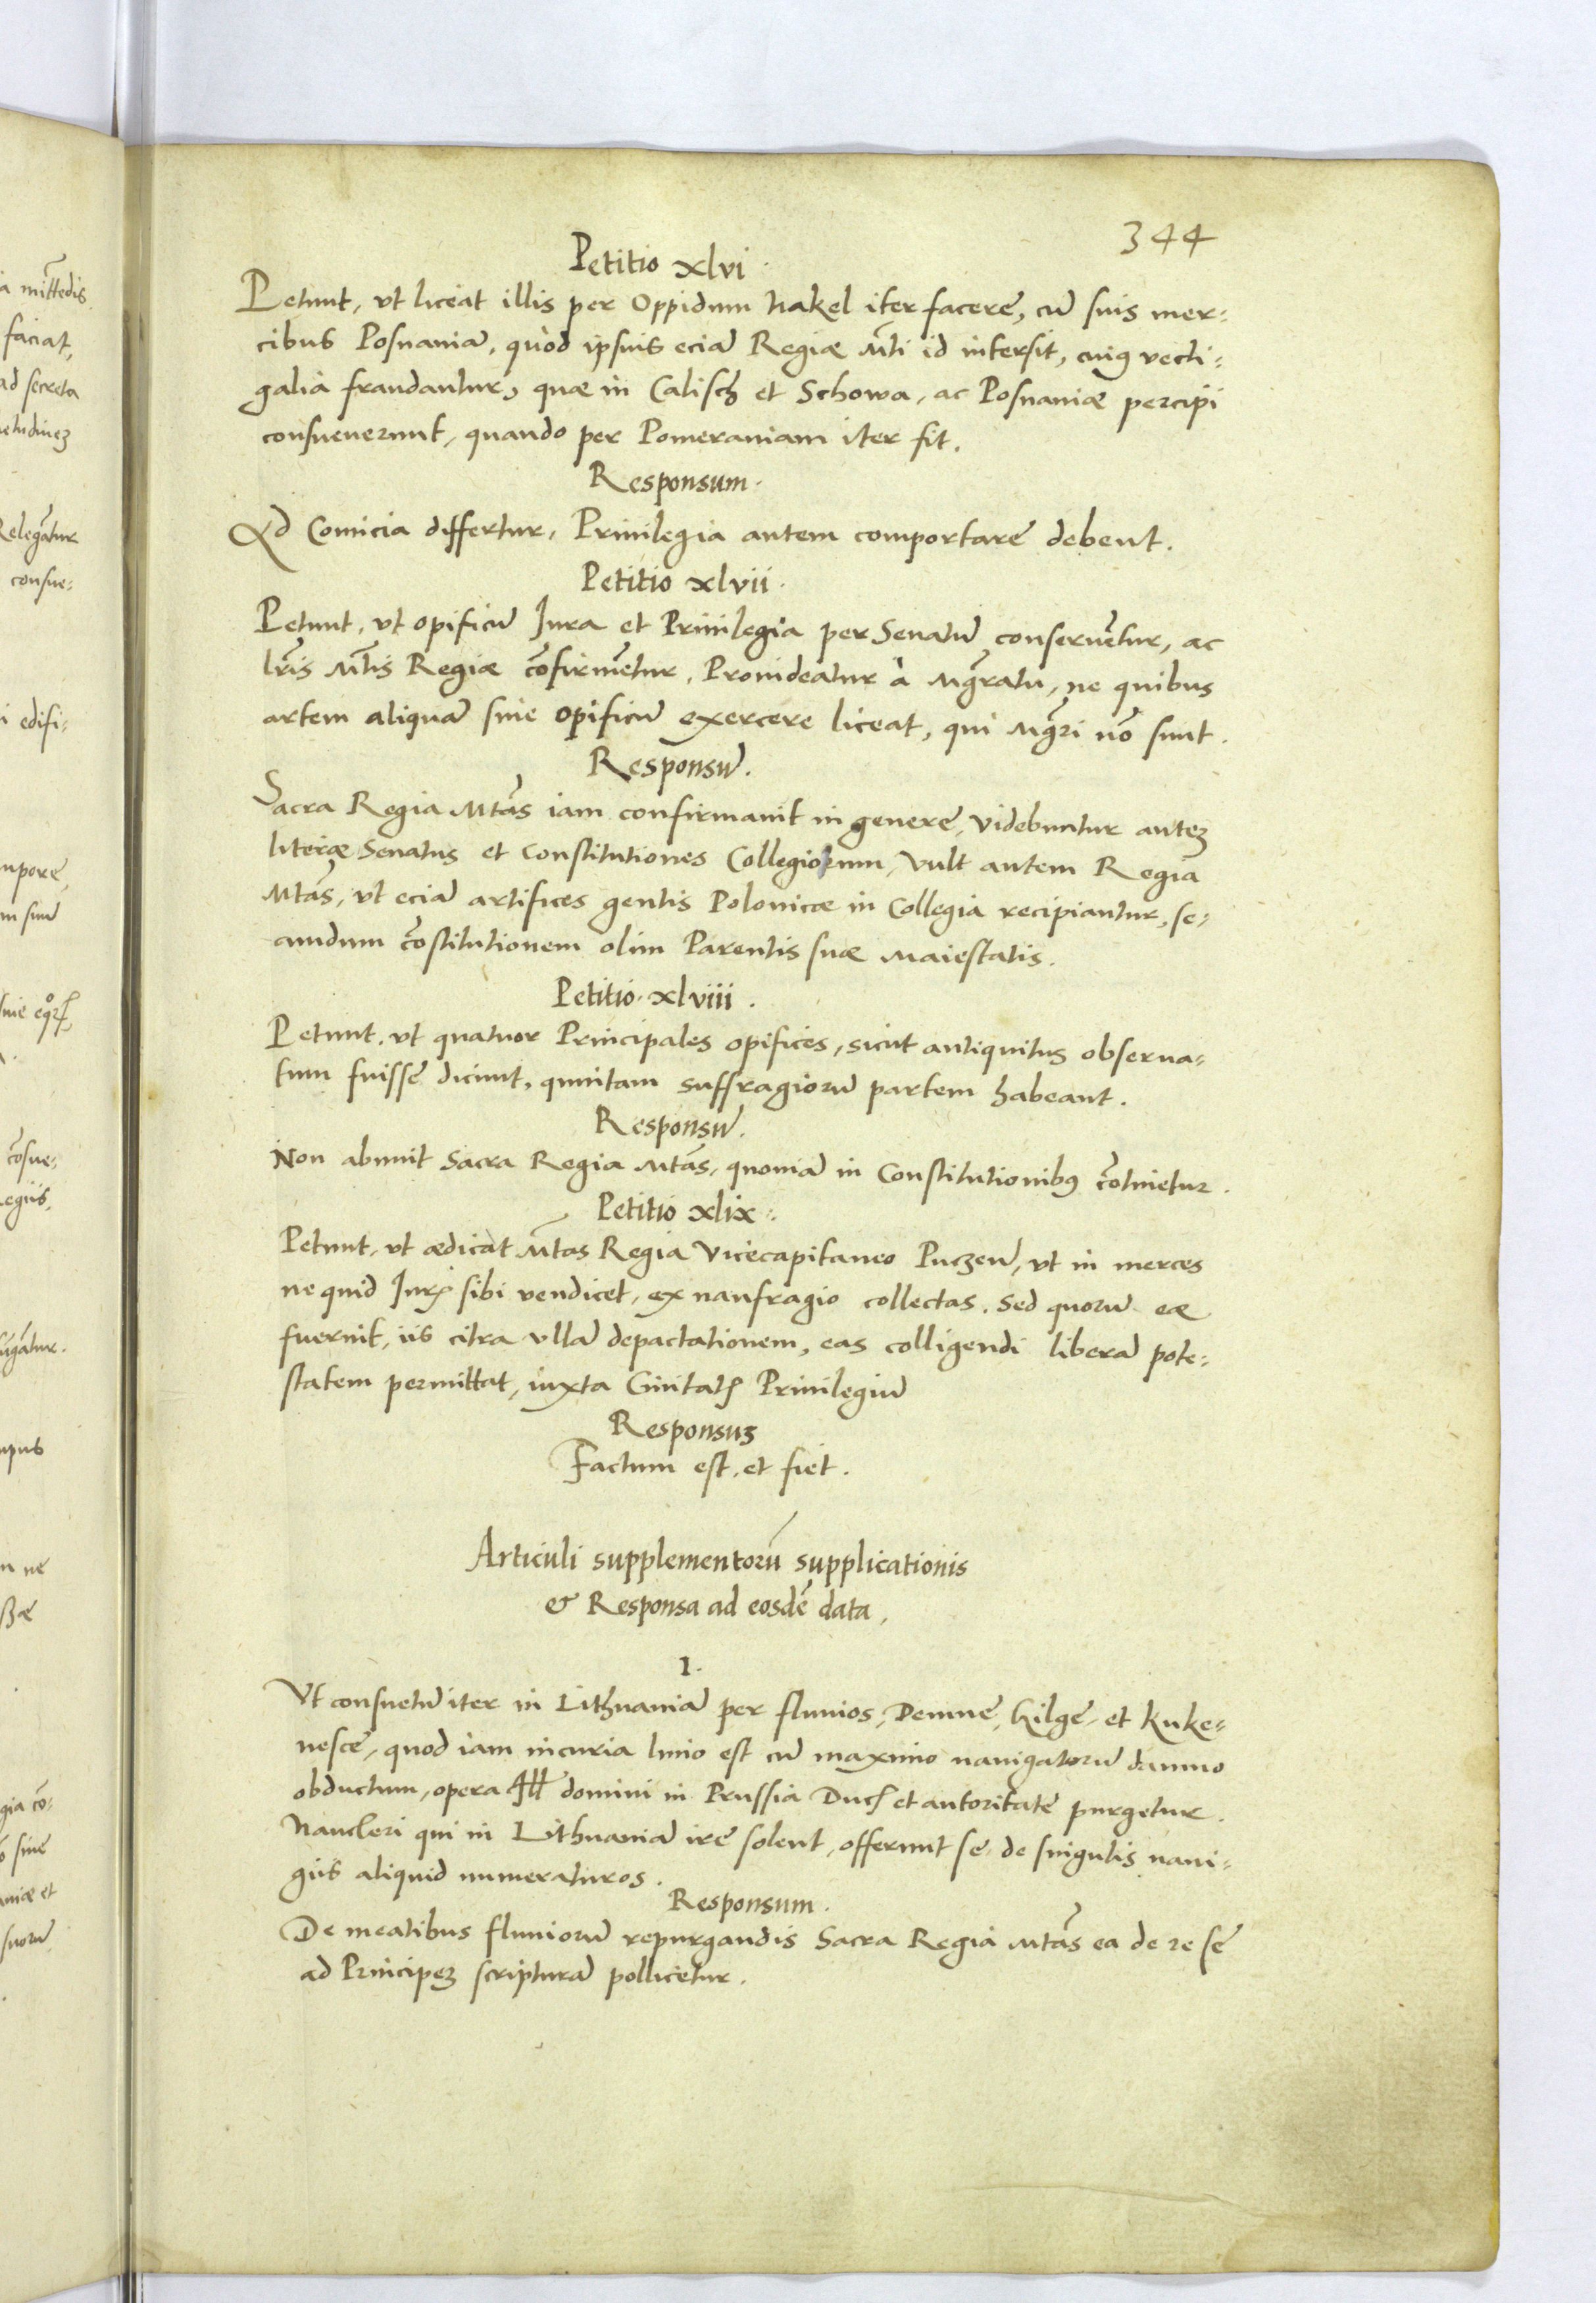 344
Petitio xlvi.
Petunt, vt liceat illis per Oppidum Nakel iter facere, cũ suis mer-
cibus Posnaniã, quòd ipsius eciã Regiæ Mti id intersit, cuiꝰ vecti-
galia fraudantur, quæ in Calisch et Schowa, ac Posnaniæ percipi
consueuerunt, quando per Pomeraniam iter fit.
Responsum.
Ad Comicia differtur, Priuilegia autem comportare debent.
Petitio xlvii.
Petunt, vt opificũ Jura et Priuilegia per Senatũ conseruẽtur, ac
lr̃is Mt̃is Regiæ cõfirmẽtur, Prouideatur à Mg̃ratu, ne quibus
artem aliquã siue opificiũ exercere liceat, qui Mg̃ri nõ sunt.
Responsũ.
Sacra Regia Mtãs iam confirmauit in genere, Videbuntur auteꝫ
literæ Senatus et Constitutiones Collegiorum, Vult autem Regia
Mtãs, vt eciã artifices gentis Polonicæ in Collegia recipiantur, se-
cundum cõstitutionem olim Parentis suæ Maiestatis.
Petitio xlviii.
Petunt, vt quatuor Principales opifices, sicut antiquitus obserua-
tum fuisse dicunt, quintam suffragiorũ partem habeant.
Responsũ.
Non abnuit Sacra Regia Mtãs, quoniã in Constitutionibꝰ cõtinetur.
Petitio xlix.
Petunt, vt ædicat Mt̃as Regia Vicecapitaneo Puczeñ, vt in merces
ne quid Jurꝭ sibi vendicet, ex naufragio collectas. Sed quorũ eæ
fuerint, iis citra vllã depactationem, eas colligendi liberã pote-
statem permittat, iuxta Ciuitatꝭ Priuilegiũ
Responsuꝫ
Factum est, et fiet.
Articuli supplementorũ supplicationis
& Responsa ad eosdẽ data,
1.
Vt consuetũ iter in Lithuaniã per fluuios, Demme, Gilge, et Kuke-
nesce, quod iam incuria limo est cũ maximo nauigatorũ damno
obductum, opera Ill domini in Prussia Ducꝭ et autoritate purgetur.
Naucleri qui in Lithuaniã ire solent, offerunt se de singulis naui-
giis aliquid numeraturos.
Responsum.
De meatibus fluuiorũ repurgandis Sacra Regia Mtãs ea de re se
ad Principeꝫ scripturã pollicetur.